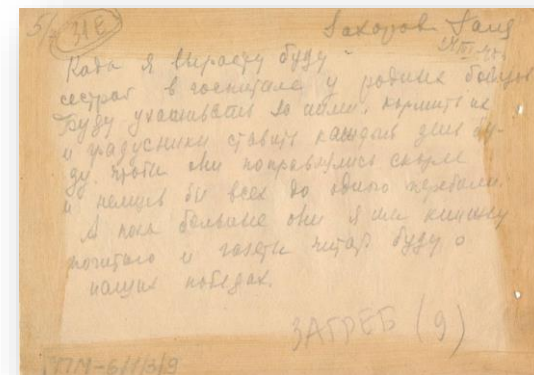 5/ 31Е Захорова Галя
Када я вырасту буду
сестрой в госпитале у родных бойцов
Буду ухаживать за ними, кормить их
и градусники ставить каждый день бу-
ду. Чтоби они поправились скорее
и немцев би всех до одного перебили.
А пока больные они я им книжку
почитаю и газети читат буду о
наших победах.
ЗАГРЕБ (9)
ТПМ-6/1/3/9